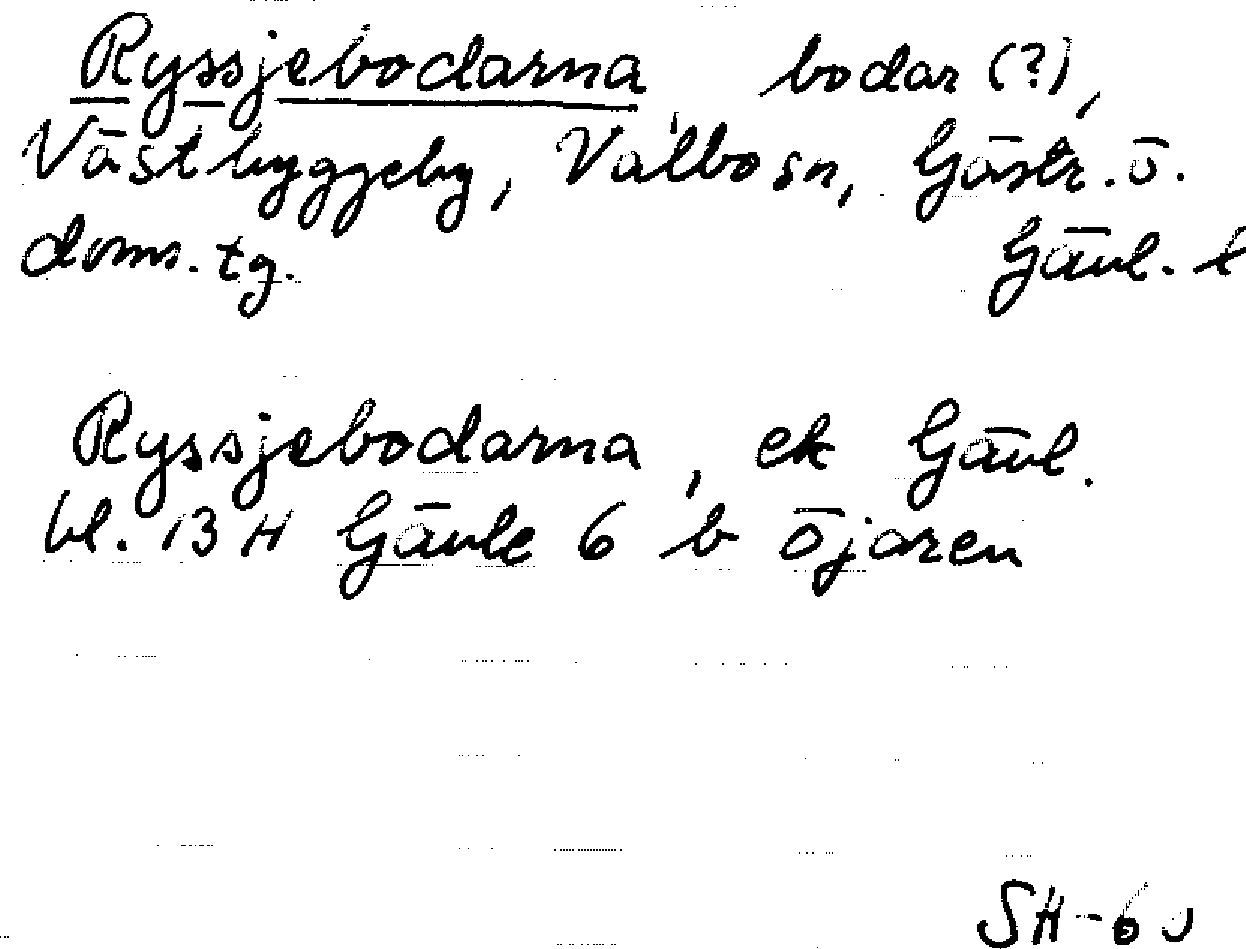 Ryssjebodarna bodar (?),
Västbyggeby, Valbo sn, Gästr. ö.
doms. tg. Gävl. l
Ryssjebodarna, ek Gävl.
bl. 13 H Gävle 6 b Öjaren